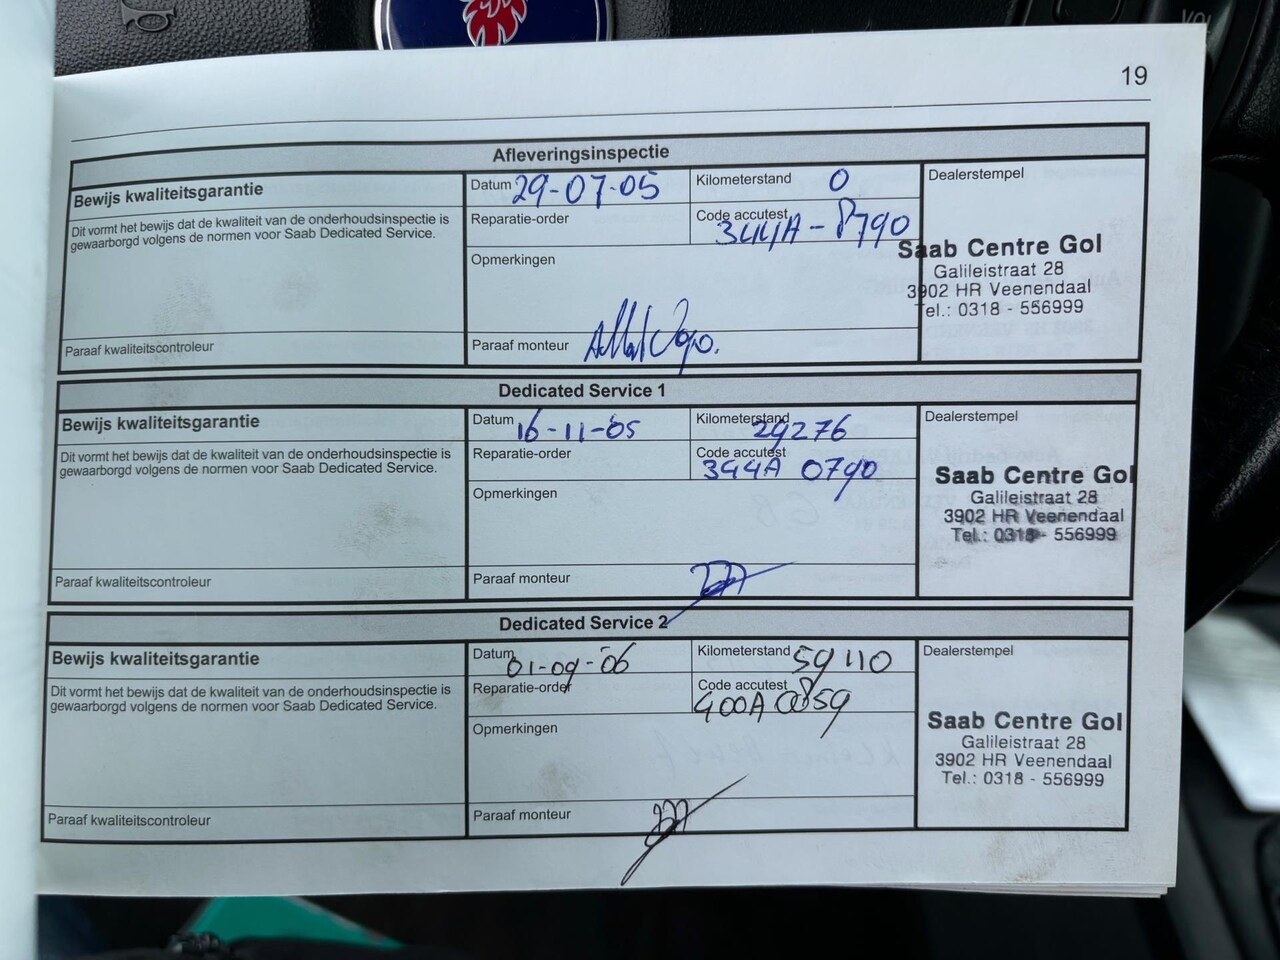 VOL
19
Afleveringsinspectie
Bewijs kwaliteitsgarantie
Dit vormt het bewijs dat de kwaliteit van de onderhoudsinspectie is
gewaarborgd volgens de normen voor Saab Dedicated Service.
Paraaf kwaliteitscontroleur
Datum 29-07-05
Kilometerstand 0
Reparatie-order
Code accutest
344A - 8790
Opmerkingen
Paraaf monteur
Dealerstempel
Saab Centre Gol
Galileistraat 28
3902 HR Veenendaal
Tel.: 0318 - 556999
Dedicated Service 1
Bewijs kwaliteitsgarantie
Dit vormt het bewijs dat de kwaliteit van de onderhoudsinspectie is
gewaarborgd volgens de normen voor Saab Dedicated Service.
Paraaf kwaliteitscontroleur
Datum 16-11-05
Kilometerstand
29276
Reparatie-order
Code accutest
344A 0790
Opmerkingen
Paraaf monteur
Dealerstempel
Saab Centre Gol
Galileistraat 28
3902 HR Veenendaal
Tel.: 0318 - 556999
Dedicated Service 2
Bewijs kwaliteitsgarantie
Dit vormt het bewijs dat de kwaliteit van de onderhoudsinspectie is
gewaarborgd volgens de normen voor Saab Dedicated Service.
Paraaf kwaliteitscontroleur
Datum 01-09-06
Kilometerstand 59110
Reparatie-order
Code accutest
400A
Opmerkingen
Paraaf monteur
Dealerstempel
Saab Centre Gol
Galileistraat 28
3902 HR Veenendaal
Tel.: 0318 - 556999